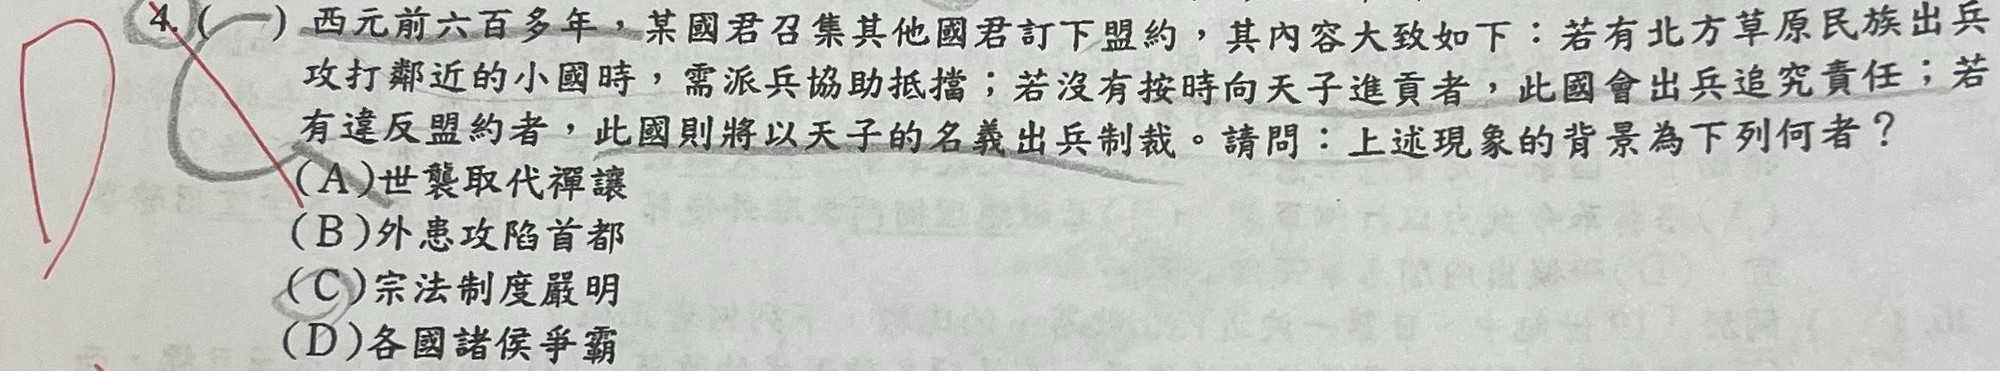 D
4.(C)西元前六百多年，某國君召集其他國君訂下盟約，其內容大致如下：若有北方草原民族出兵
攻打鄰近的小國時，需派兵協助抵擋；若沒有按時向天子進貢者，此國會出兵追究責任；若
有違反盟約者，此國則將以天子的名義出兵制裁。請問：上述現象的背景為下列何者？
(A)世襲取代禪讓
(B)外患攻陷首都
(C)宗法制度嚴明
(D)各國諸侯爭霸